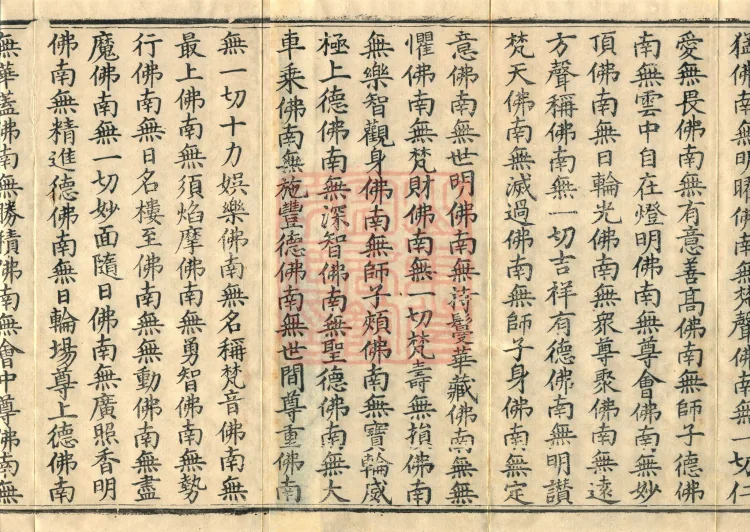 猛佛南無明曜佛南無梵聲佛南無一切仁
愛無畏佛南無有意善高佛南無師子德佛
南無雲中自在燈明佛南無尊會佛南無妙
頂佛南無日輪光佛南無眾尊聚佛南無遠
方聲稱佛南無一切吉祥有德佛南無明讚
梵天佛南無滅過佛南無師子身佛南無定
意佛南無世明佛南無持鬘華藏佛南無無
懼佛南無梵財佛南無一切梵壽無損佛南
無樂智觀身佛南無師子頰佛南無寶輪威
極上德佛南無深智佛南無聖德佛南無大
車乘佛南無施豐德佛南無世間尊重佛南
無一切十力娛樂佛南無名稱梵音佛南無
最上佛南無須焰摩佛南無勇智佛南無勢
行佛南無日名樓至佛南無無動佛南無盡
魔佛南無一切妙面隨日佛南無廣照香明
佛南無精進德佛南無日輪場尊上德佛南
無華蓋佛南無勝積佛南無會中尊佛南無